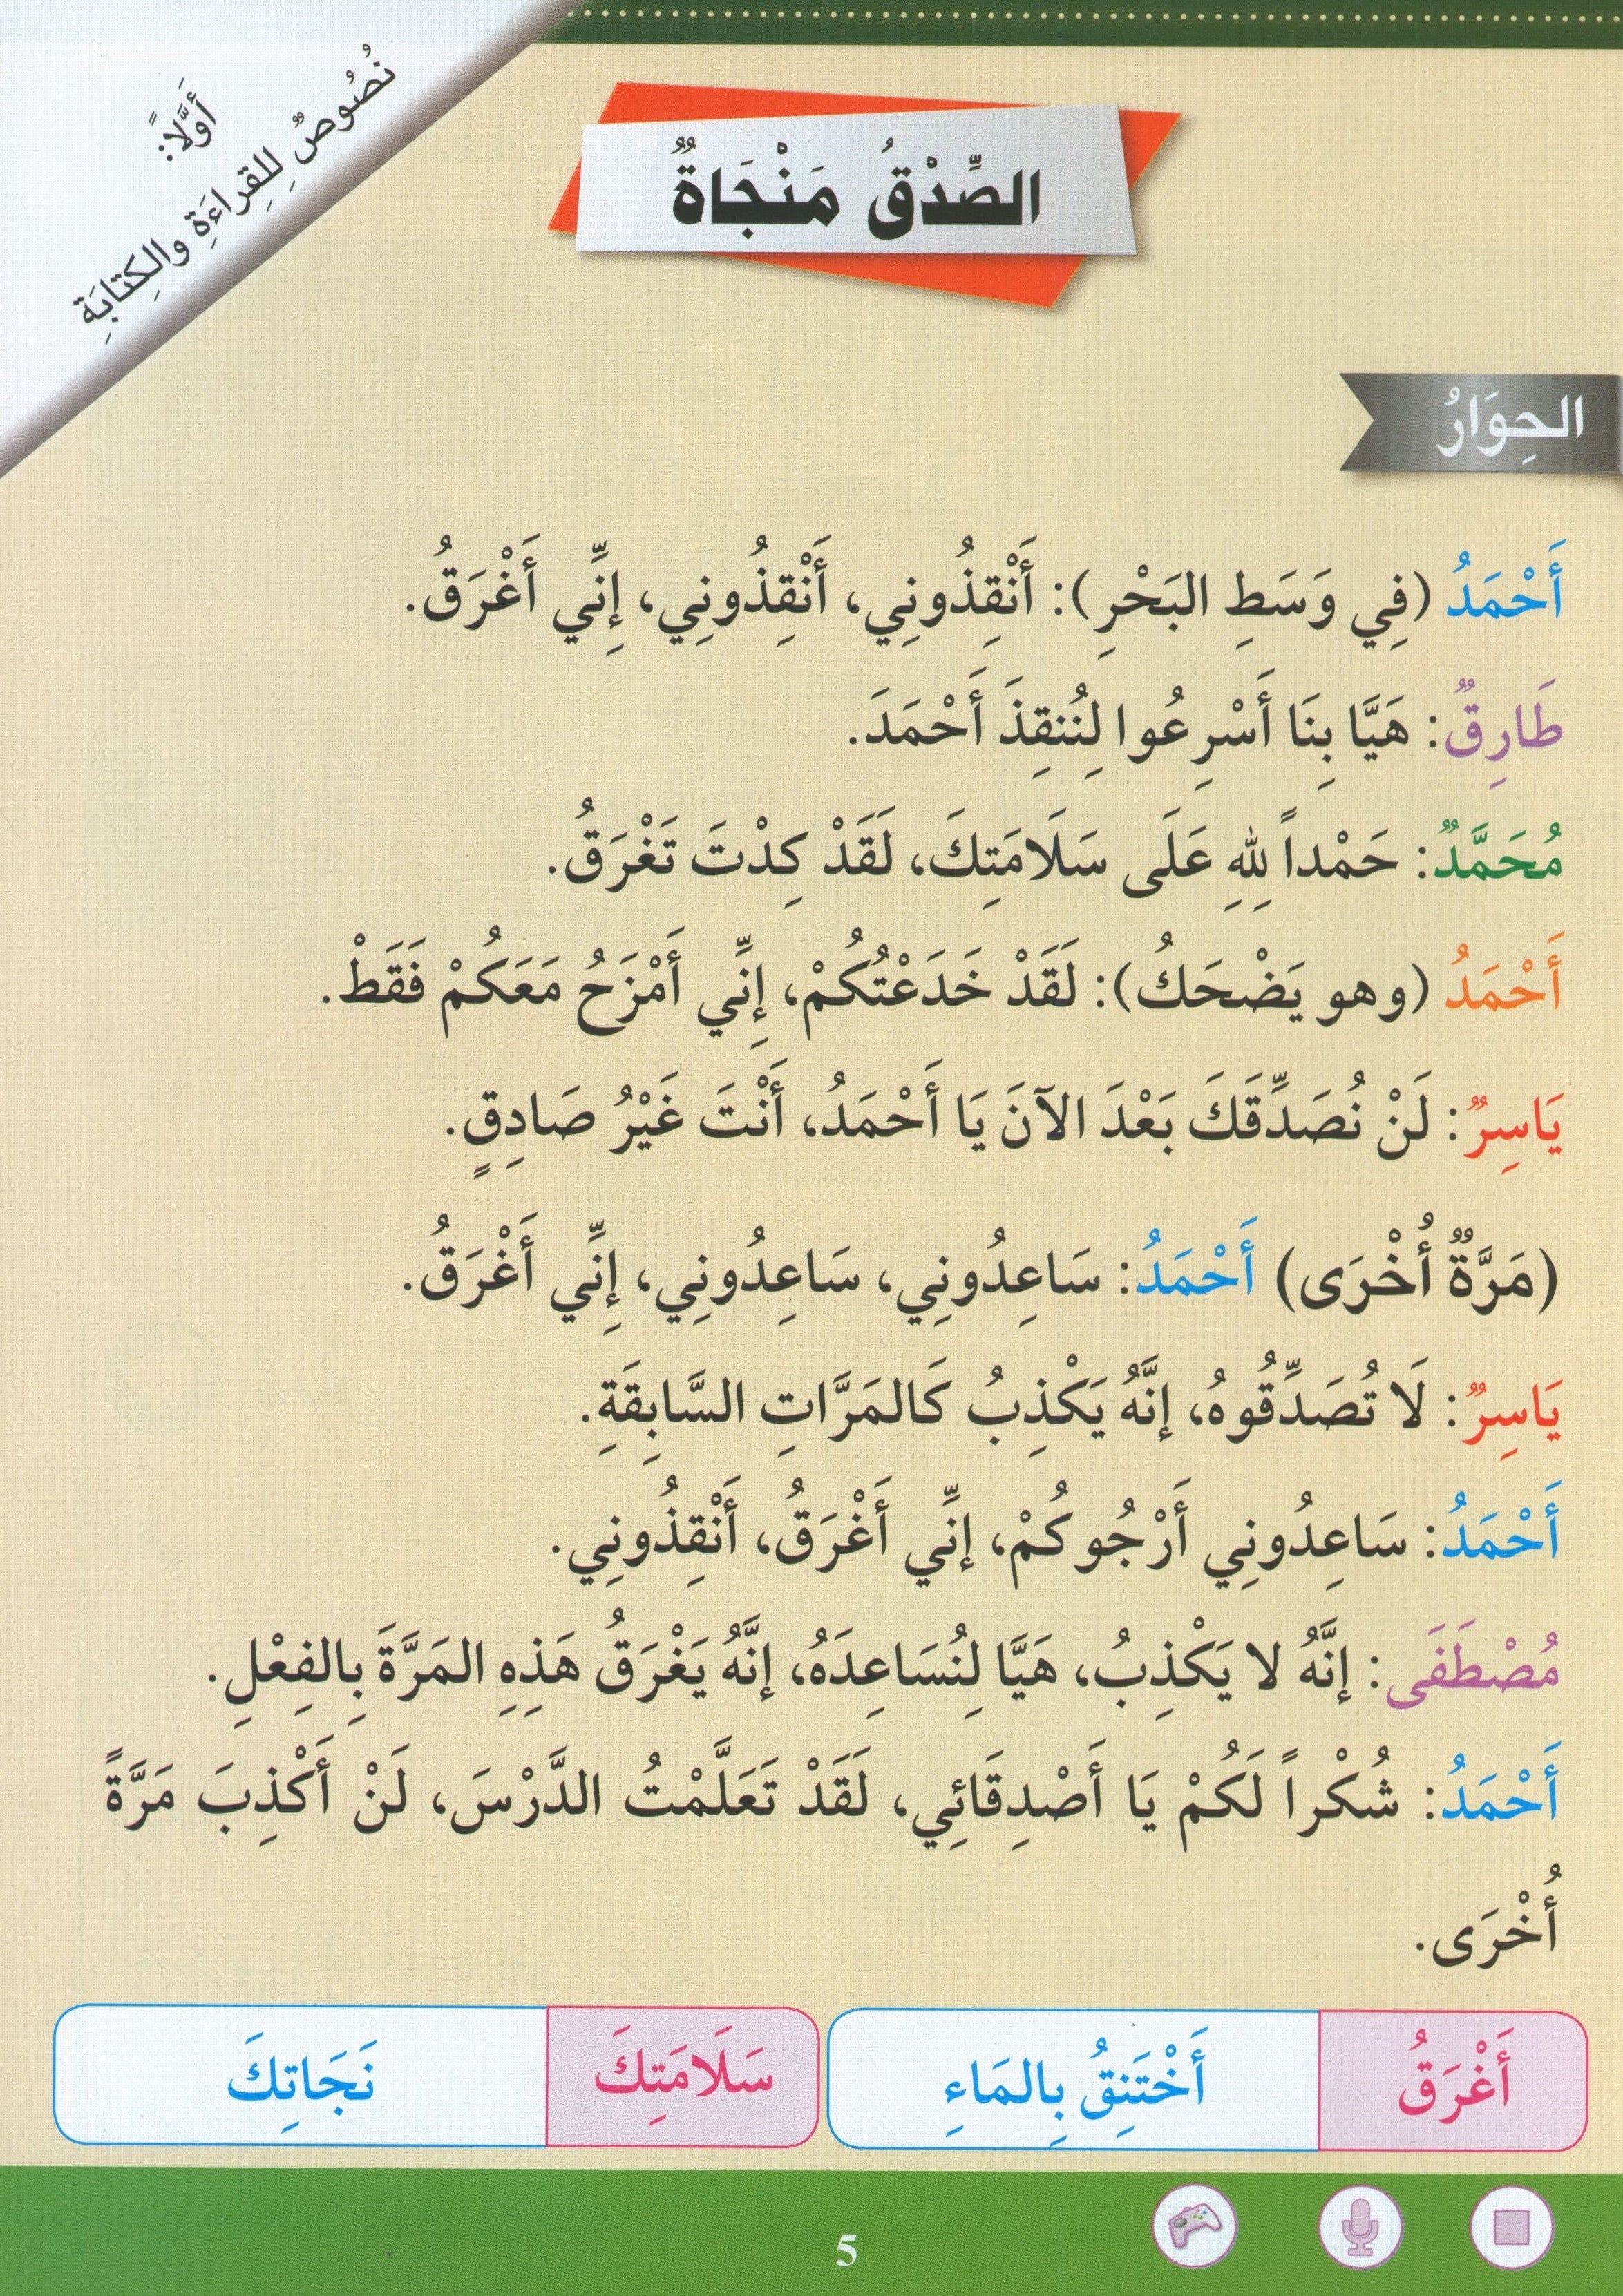 أَوَّلًا:
نُصُوصٌ لِلقِراءَةِ والكِتابَةِ
الصِّدْقُ مَنْجَاةٌ
الحِوَارُ
أَحْمَدُ (فِي وَسَطِ البَحْرِ): أَنْقِذُونِي، أَنْقِذُونِي، إِنِّي أَغْرَقُ.
طَارِقٌ: هَيَّا بِنَا أَسْرِعُوا لِنُنقِذَ أَحْمَدَ.
مُحَمَّدٌ: حَمْداً لِلهِ عَلَى سَلَامَتِكَ، لَقَدْ كِدْتَ تَغْرَقُ.
أَحْمَدُ (وهو يَضْحَكُ): لَقَدْ خَدَعْتُكُمْ، إِنِّي أَمْزَحُ مَعَكُمْ فَقَطْ.
يَاسِرٌ: لَنْ نُصَدِّقَكَ بَعْدَ الآنَ يَا أَحْمَدُ، أَنْتَ غَيْرُ صَادِقٍ.
(مَرَّةٌ أُخْرَى) أَحْمَدُ: سَاعِدُونِي، سَاعِدُونِي، إِنِّي أَغْرَقُ.
يَاسِرٌ: لَا تُصَدِّقُوهُ، إِنَّهُ يَكْذِبُ كَالمَرَّاتِ السَّابِقَةِ.
أَحْمَدُ: سَاعِدُونِي أَرْجُوكُمْ، إِنِّي أَغْرَقُ، أَنْقِذُونِي.
مُصْطَفَى: إِنَّهُ لا يَكْذِبُ، هَيَّا لِنُسَاعِدَهُ، إِنَّهُ يَغْرَقُ هَذِهِ المَرَّةَ بِالفِعْلِ.
أَحْمَدُ: شُكْراً لَكُمْ يَا أَصْدِقَائِي، لَقَدْ تَعَلَّمْتُ الدَّرْسَ، لَنْ أَكْذِبَ مَرَّةً
أُخْرَى.
أَغْرَقُ
أَخْتَنِقُ بِالمَاءِ
سَلَامَتِكَ
نَجَاتِكَ
5